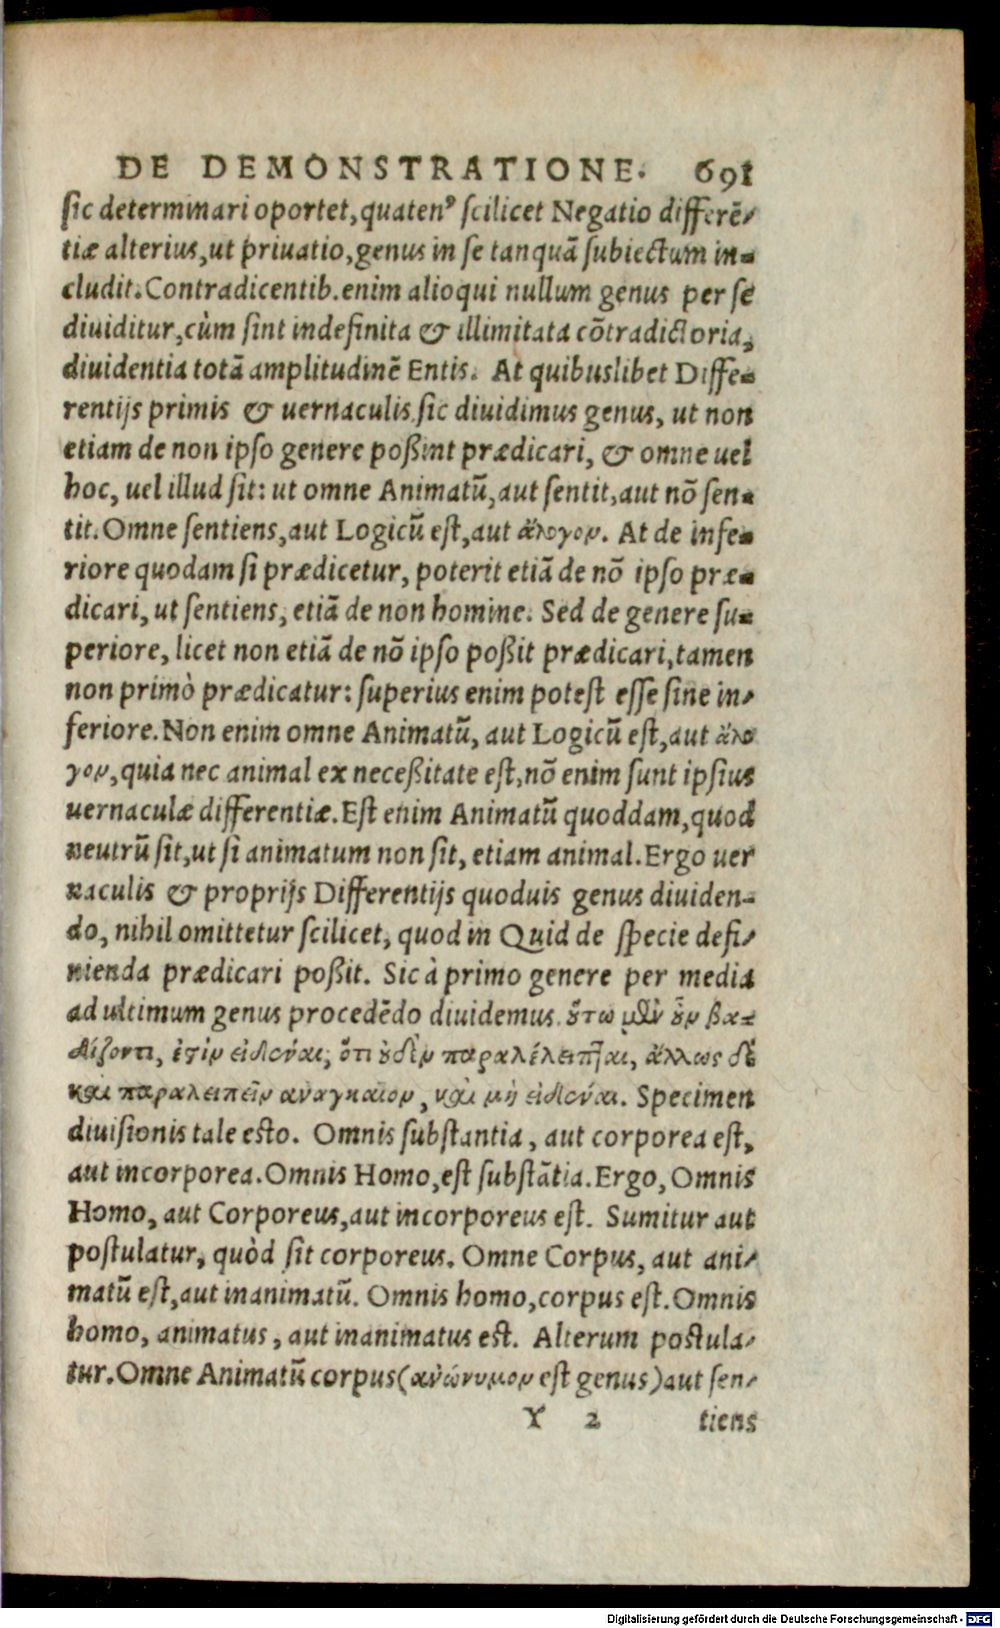 DE DEMONSTRATIONE. 691
sic determinari oportet, quatenꝰ scilicet Negatio differẽ-
tiæ alterius, ut priuatio, genus in se tanquã subiectum in-
cludit. Contradicentib. enim alioqui nullum genus per se
diuiditur, cùm sint indefinita & illimitata cõtradictoria,
diuidentia totã amplitudinẽ Entis. At quibuslibet Diffe-
rentijs primis & uernaculis sic diuidimus genus, ut non
etiam de non ipso genere poßint prædicari, & omne uel
hoc, uel illud sit: ut omne Animatũ, aut sentit, aut nõ sen-
tit. Omne sentiens, aut Logicũ est, aut ἄλογον. At de infe-
riore quodam si prædicetur, poterit etiã de nõ ipso præ-
dicari, ut sentiens, etiã de non homine. Sed de genere su-
periore, licet non etiã de nõ ipso poßit prædicari, tamen
non primò prædicatur: superius enim potest esse sine in-
feriore. Non enim omne Animatũ, aut Logicũ est, aut ἄλο
γον, quia nec animal ex neceßitate est, nõ enim sunt ipsius
uernaculæ differentiæ. Est enim Animatũ quoddam, quod
neutrũ sit, ut si animatum non sit, etiam animal. Ergo uer
naculis & proprijs Differentijs quoduis genus diuiden-
do, nihil omittetur scilicet, quod in Quid de specie defi-
nienda prædicari poßit. Sic à primo genere per media
ad ultimum genus procedẽdo diuidemus. ὅτω μὲν ὂν βα-
δίζοντι, ἐςὶν εἰδέναι, ὅτι ὐδὲν παραλέλειπται, ἄλλως δὲ
καὶ παραλειπεῖν αναγκαιον, καὶ μὴ εἰδέναι. Specimen
diuisionis tale esto. Omnis substantia, aut corporea est,
aut incorporea. Omnis Homo, est substãtia. Ergo, Omnis
Homo, aut Corporeus, aut incorporeus est. Sumitur aut
postulatur, quòd sit corporeus. Omne Corpus, aut ani-
matũ est, aut inanimatũ. Omnis homo, corpus est. Omnis
homo, animatus, aut inanimatus est. Alterum postula-
tur. Omne Animatũ corpus (ανώνυμον est genus) aut sen-
Y 2 tiens
Digitalisierung gefördert durch die Deutsche Forschungsgemeinschaft - DFG